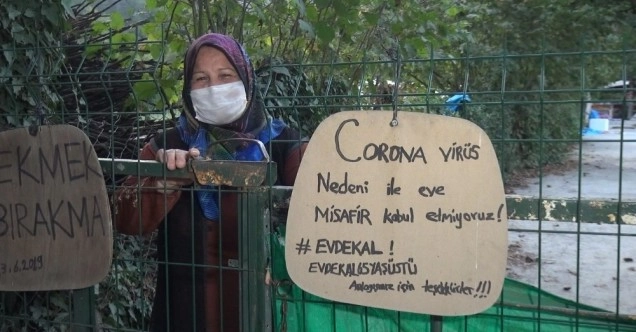 EKMEK
BIRAKMA
CORONA VİRÜS
Nedeni ile eve
MİSAFİR kabul etmiyoruz!
#EVDEKAL!
EVDEKAL65YAŞÜSTÜ
için teşekkürler!!!